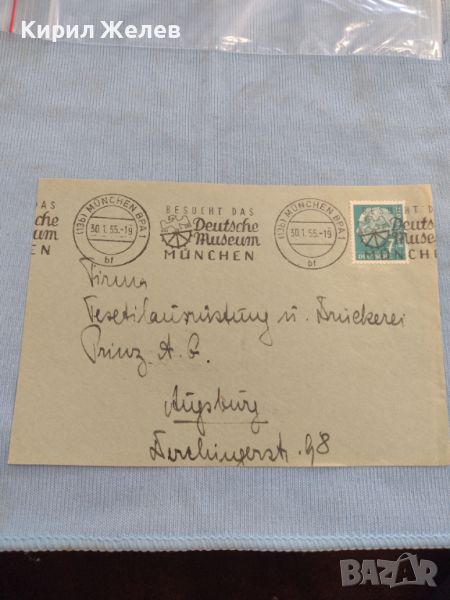 Кирил Желев
DAS
Deutsche
Museum
EN
(13b) MÜNCHEN BPA 1
30.1.55.-19
bf
BESUCHT DAS
Deutsche
Museum
MÜNCHEN
(13b) MÜNCHEN BPA 1
30.1.55.-19
bf
Deutsche
Museum
MÜNCHEN
Firma
Textilausrüstung u. Druckerei
Prinz A. G.
Augsburg
98
BAZAR